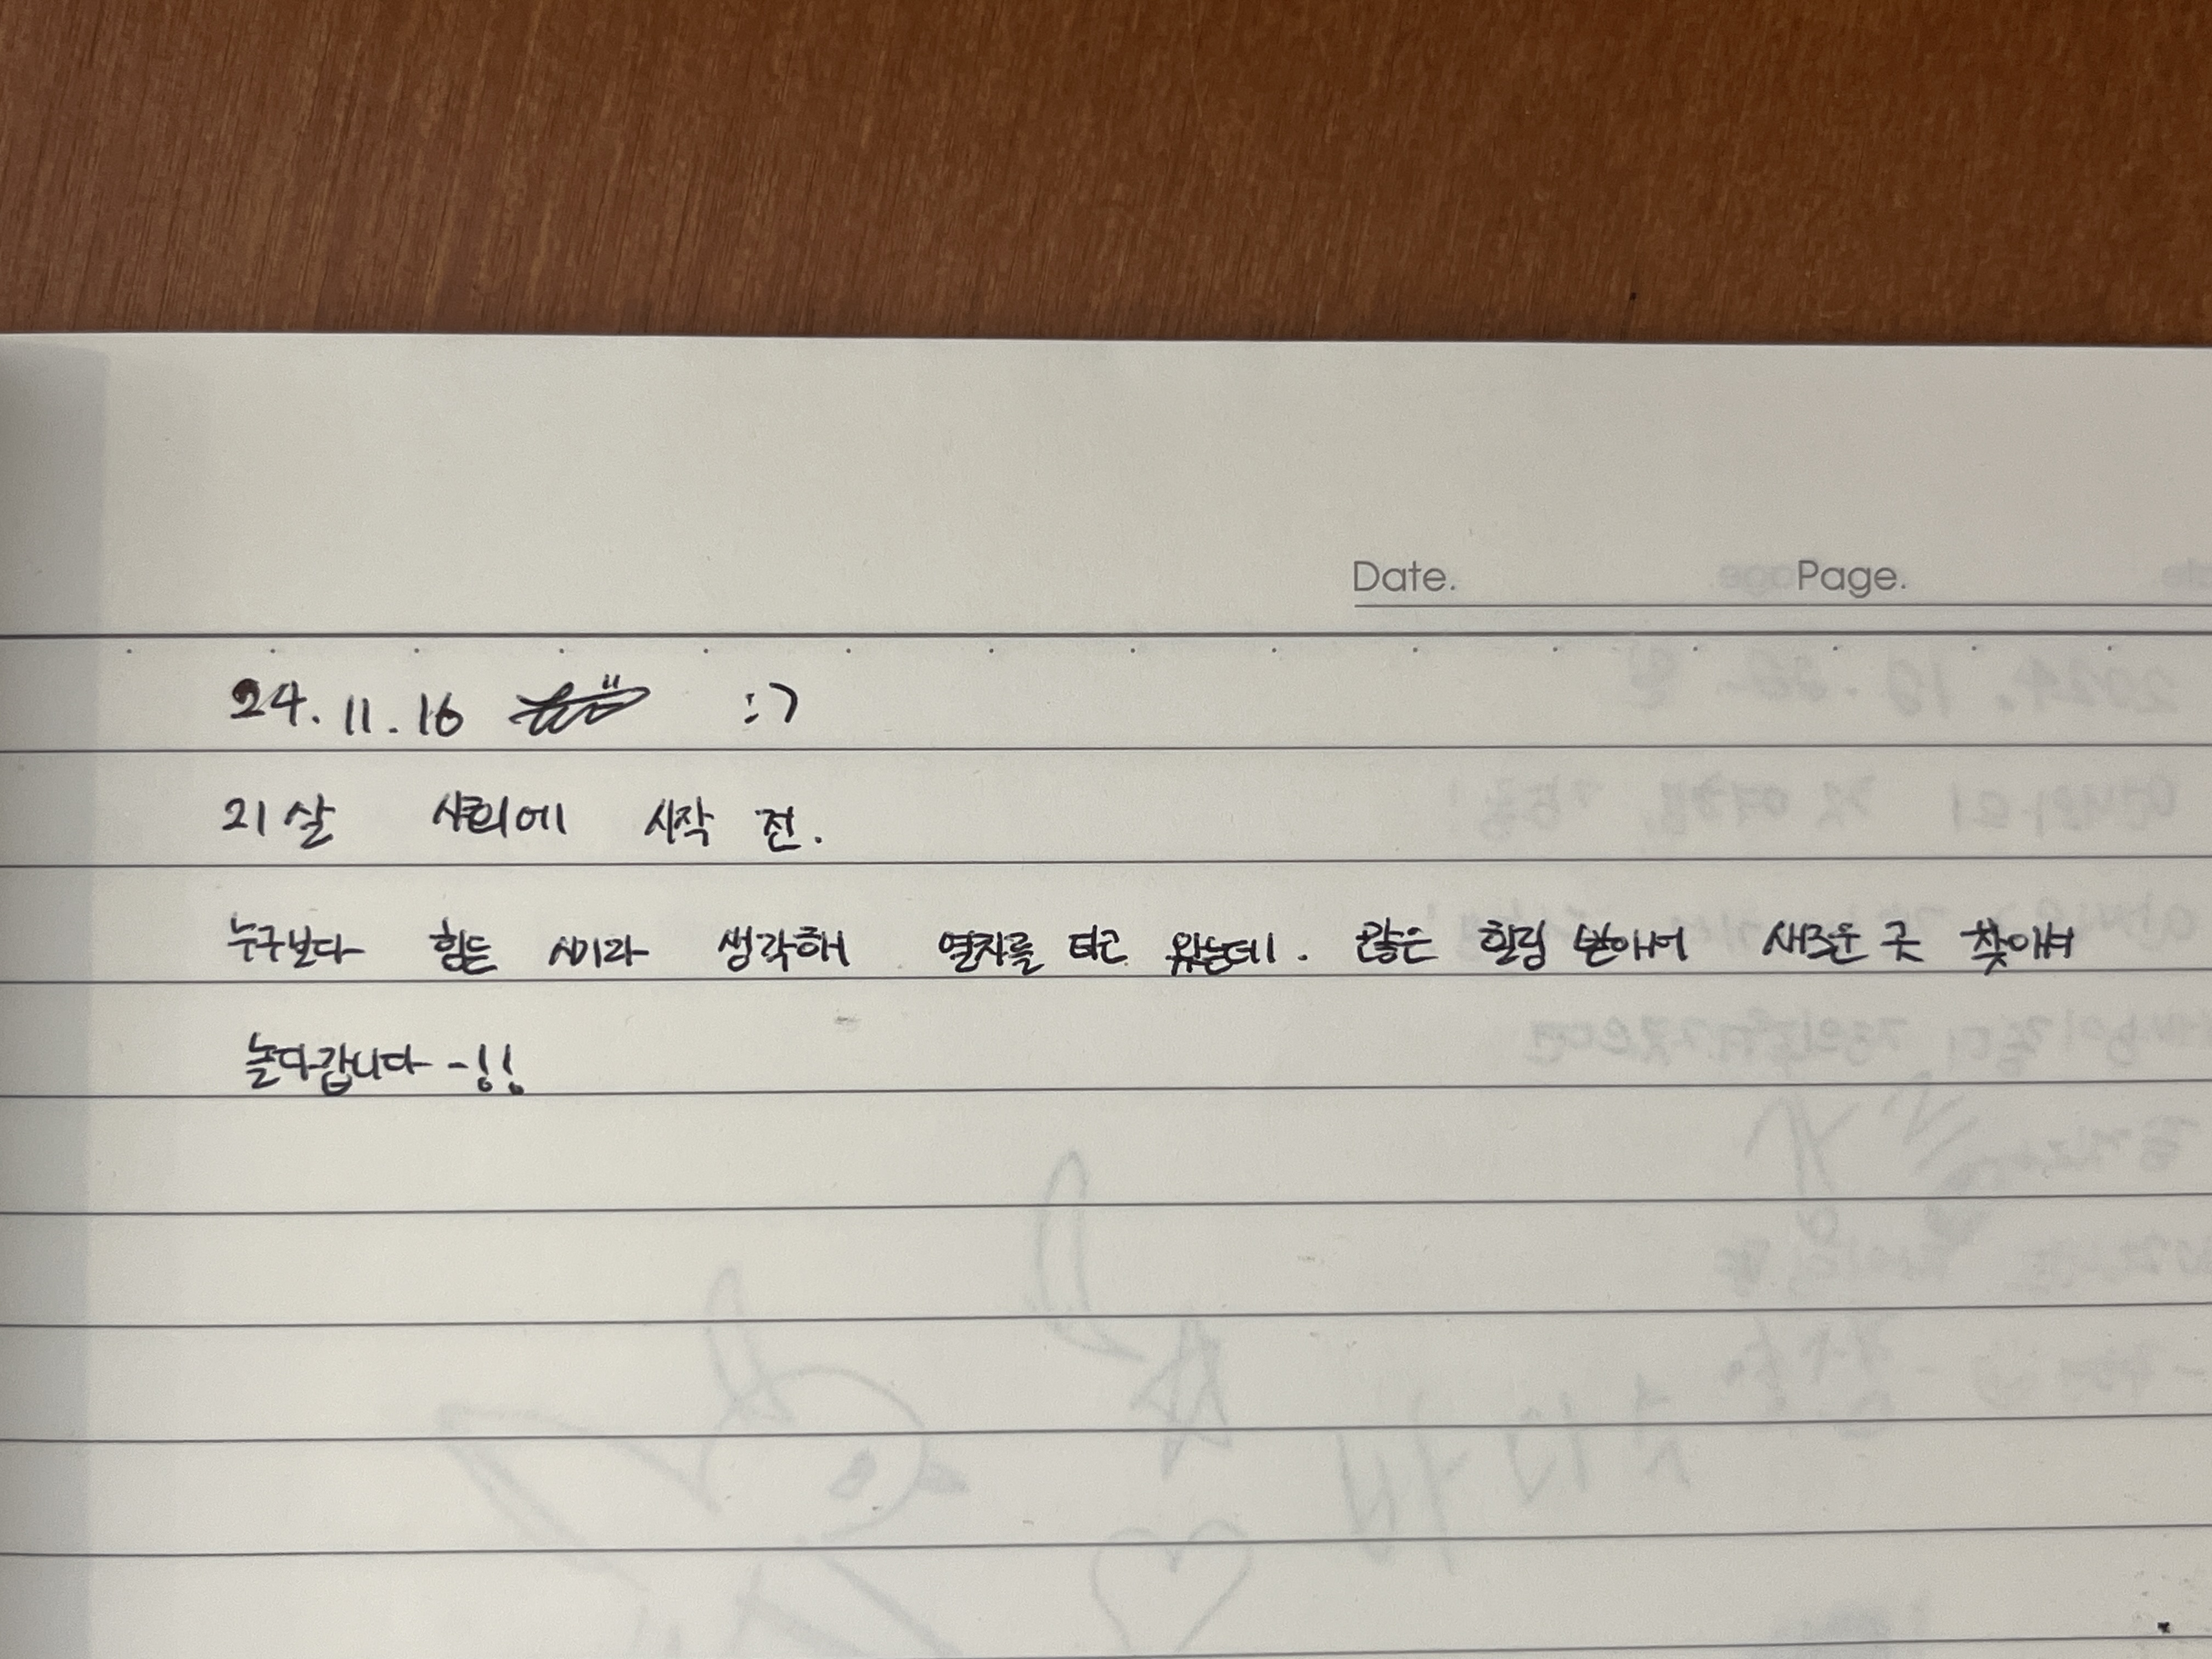 Date. Page.
24.11.16 :)
21살 사회에 시작 전.
누구보다 힘든 시기라 생각해 열차를 타고 왔는데. 많은 힐링 받아서 새로운 곳 찾아서
놀다갑니다-!!